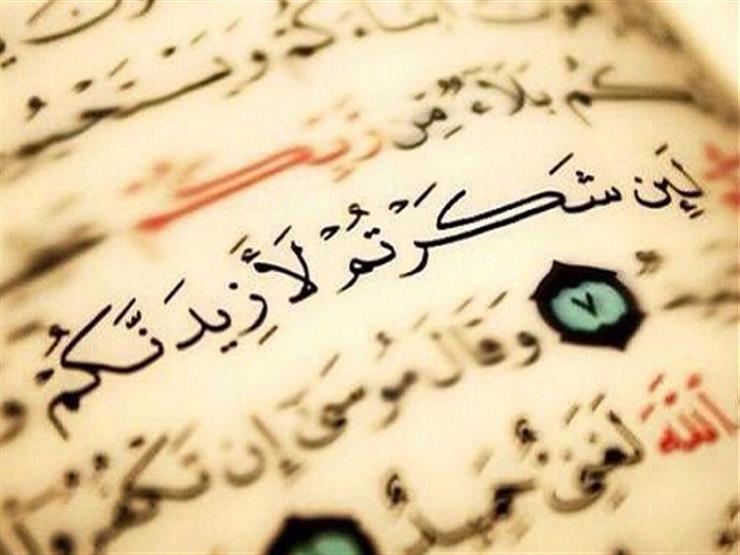 أَبْنَاءَكُمْ وَيَسْتَحْيُو
كُمْ بَلَاءٌ مِّن رَّبِّكُمْ
لَئِن شَكَرْتُمْ لَأَزِيدَنَّكُمْ
٧ وَقَالَ مُوسَىٰ إِن تَكْفُرُوا
اللَّهَ لَغَنِيٌّ حَمِيدٌ